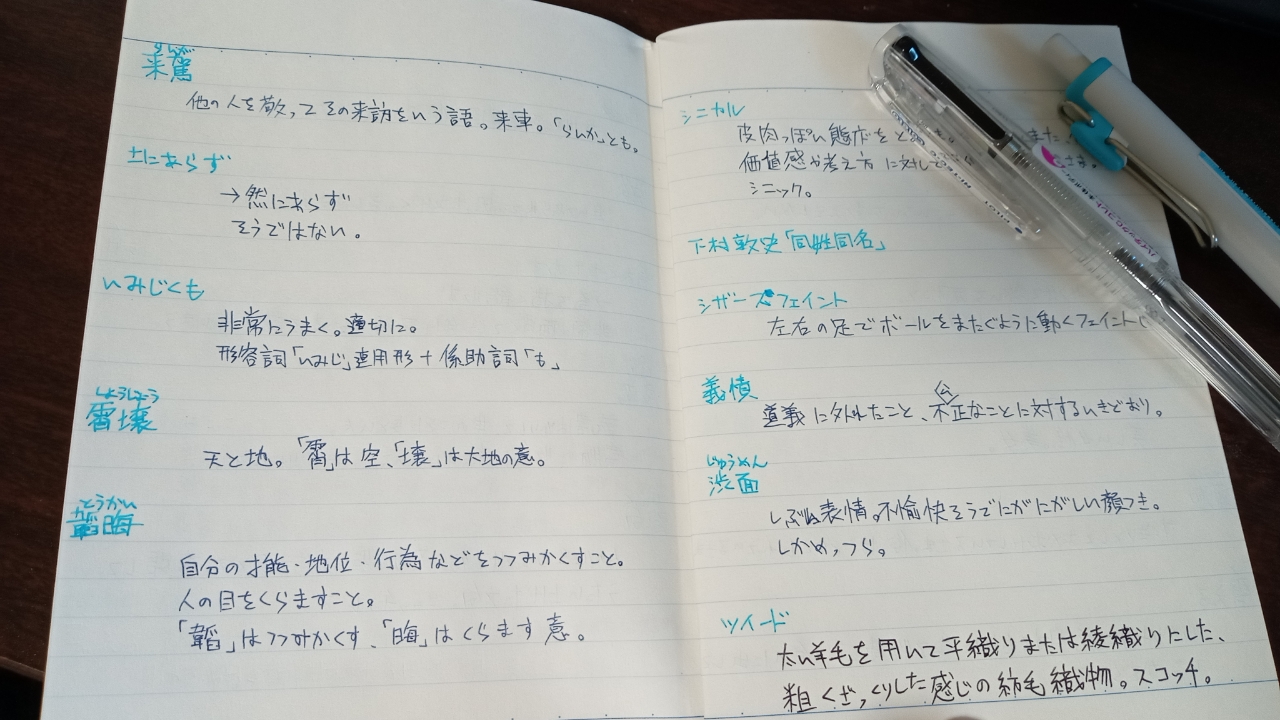 来駕
他の人を敬ってその来訪をいう語。来車。「らいか」とも。
にあらず
→然にあらず
そうではない。
いみじくも
非常にうまく。適切に。
形容詞「いみじ」連用形+係助詞「も」
しょうじょう
霄壌
天と地。「霄」は空、「壌」は大地の意。
とうかい
韜晦
自分の才能・地位・行為などをつつみかくすこと。
人の目をくらますこと。
「韜」はつつみかくす、「晦」はくらます意。
シニカル
皮肉っぽい態度をと また、
価値感や考え方に対し さま。
シニック。
下村敦史「同姓同名」
シザーズフェイント
左右の足でボールをまたぐように動くフェイント
義憤
公
道義に外れたこと、不正なことに対するいきどおり。
じゅうめん
渋面
しぶい表情。不愉快そうでにがにがしい顔つき。
しかめっつら。
ツイード
太い羊毛を用いて平織りまたは綾織りにした、
粗くざっくりした感じの紡毛織物。スコッチ。